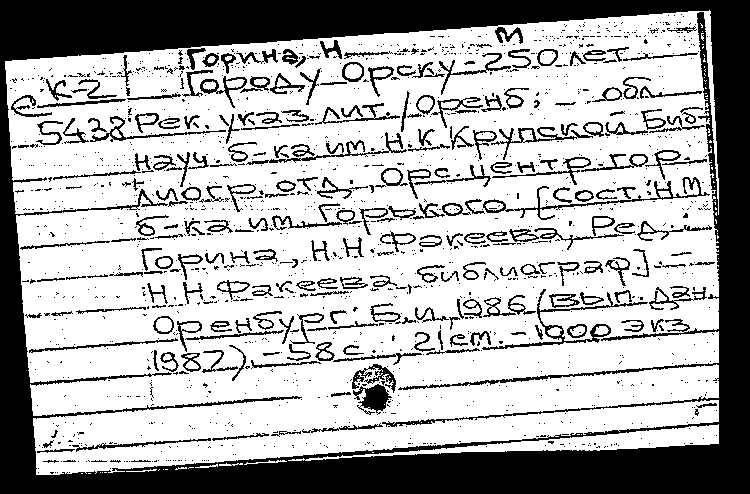 Горина, Н М
К-2 Городу Орску - 250 лет.
5438 Рек. указ. лит. / Оренб. обл.
науч. б-ка им. Н.К. Крупской Биб-
лиогр. отд., Орс. центр. гор.
б-ка им. Горького; [Сост.: Н.М.
Горина, Н.Н. Факеева; Ред.:
Н.Н. Факеева, библиограф]. -
Оренбург: Б.и., 1986 (вып. дан.
1987). - 58 с.; 21 см. - 1000 экз.